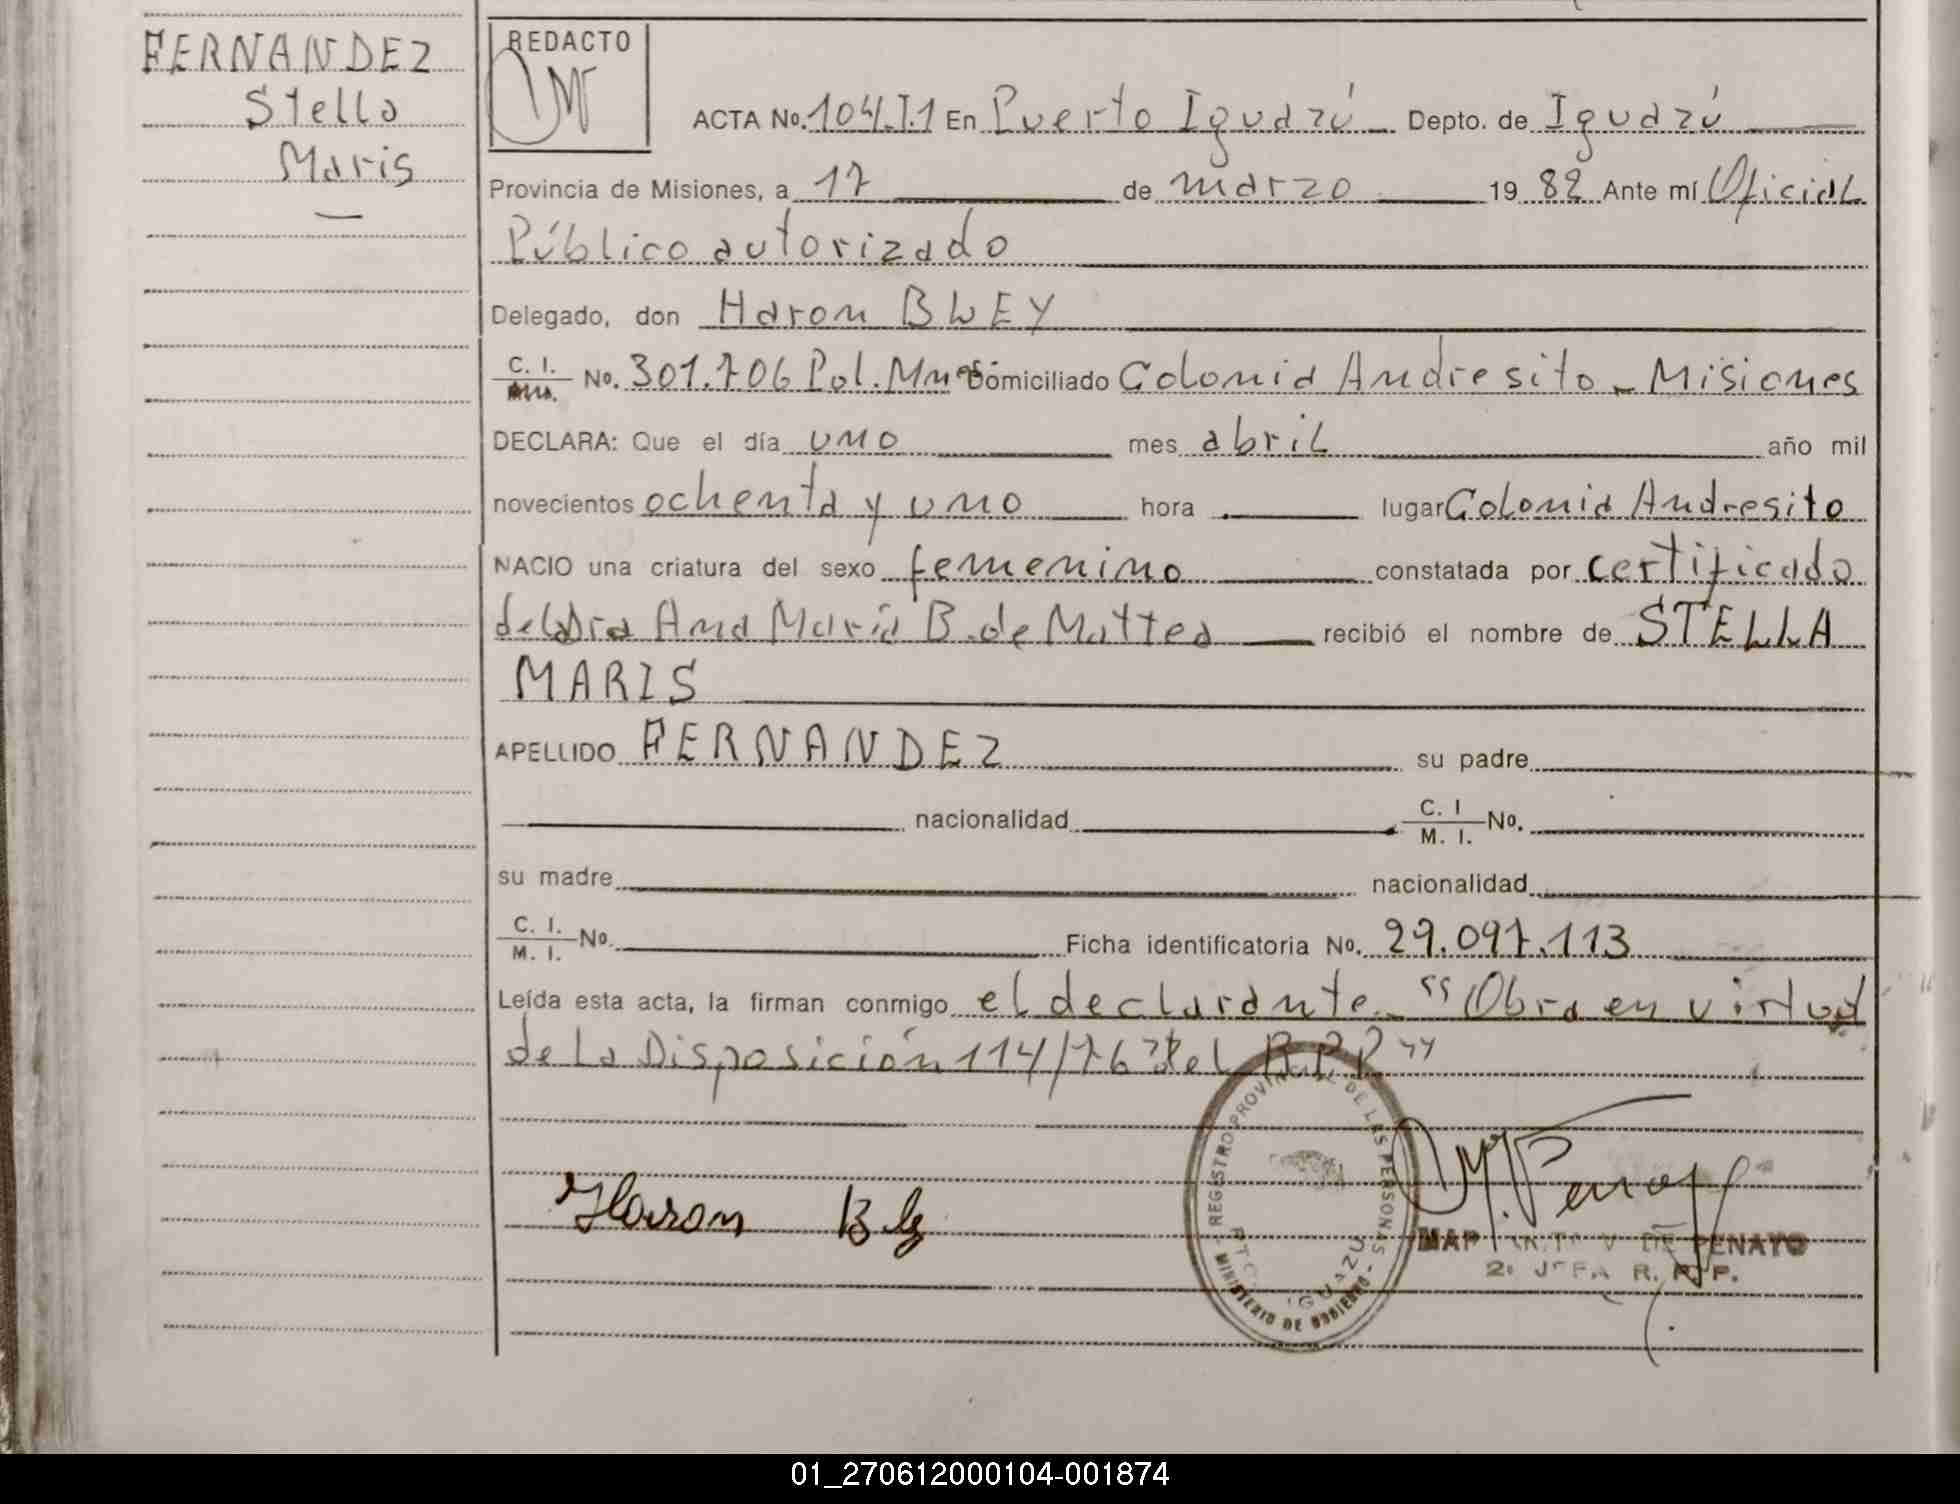 FERNANDEZ
Stella
Maris
REDACTO
ACTA No. 104.T.1 En Puerto Iguazú Depto. de Iguazú
Provincia de Misiones, a 17 de marzo 19 82 Ante mí Oficial
Público autorizado
Delegado, don Haron BLEY
C. I. No. 301.706 Pol. Mnes Domiciliado Colonia Andresito - Misiones
DECLARA: Que el día uno mes abril año mil
novecientos ochenta y uno hora lugar Colonia Andresito
NACIO una criatura del sexo femenino constatada por certificado
de la Dra Ana María B. de Mattea recibió el nombre de STELLA
MARIS
APELLIDO FERNANDEZ su padre
nacionalidad C. I M. I. No.
su madre nacionalidad
C. I. M. I. No. Ficha identificatoria No. 29.097.113
Leída esta acta, la firman conmigo el declarante. "Obra en virtud
de la Disposición 114/76 del R.P.P"
REGISTRO PROVINCIAL DE LAS PERSONAS
MINISTERIO DE GOBIERNO
IGUAZU
Haron Bley
DE PENAYO
JEFA R. P. P.
01_270612000104-001874